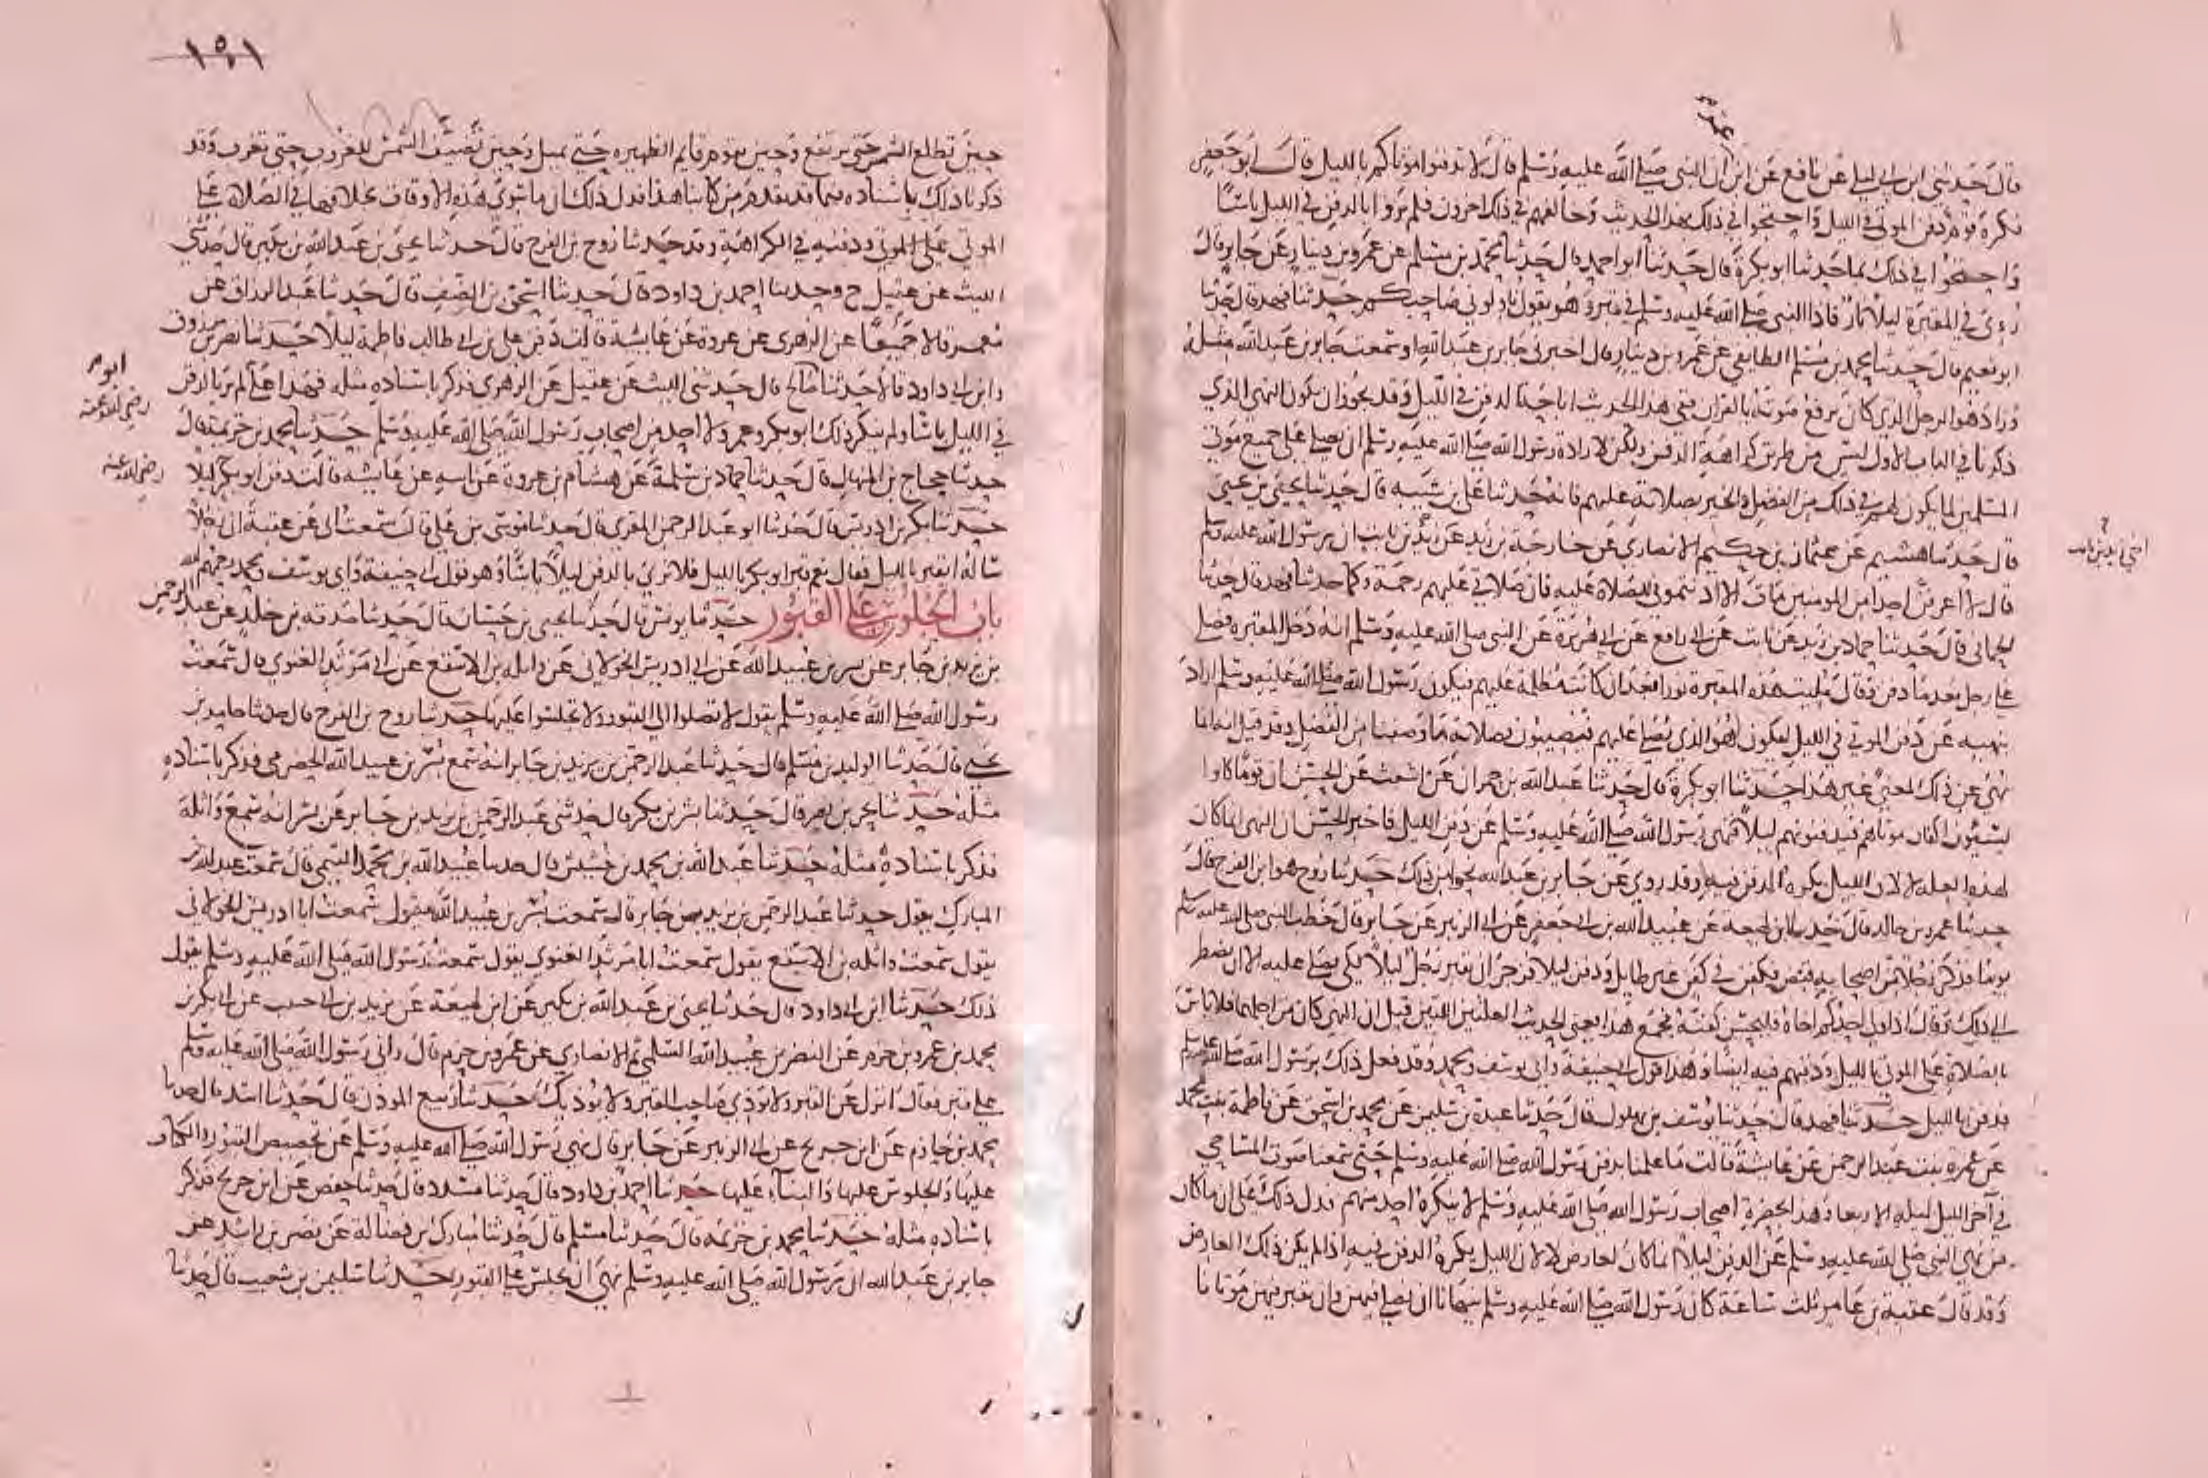 قال حدثني ابن ابي ليلى عن نافع عن ابن ان النبي صلى الله عليه وسلم قال لا تدفنوا موتاكم بالليل قال ابو جعفر
فكره قوم دفن الموتى في الليل واحتجوا في ذلك بهذا الحديث وخالفهم في ذلك اخرون فلم يروا بالدفن في الليل باسًا
واحتجوا في ذلك بما حدثنا ابو بكرة قال حدثنا ابو احمد قال حدثنا محمد بن مسلم عن عمرو بن دينار عن جابر قال
رءي في المقبرة ليلا نار فاذا النبي صلى الله عليه وسلم في قبر وهو يقول ناولوني صاحبكم حدثنا فهد قال حدثنا
ابو نعيم قال حدثنا محمد بن مسلم الطايفي عن عمرو بن دينار قال اخبرني جابر بن عبد الله او سمعت جابر بن عبد الله مثله
وزاد هو الرجل الذي كان يرفع صوته بالقران ففي هذا الحديث اباحة الدفن في الليل وقد يجوز ان يكون النهي الذي
ذكرنا في الباب الاول ليس من طريق كراهة الدفن ولكن لارادة رسول الله صلى الله عليه وسلم ان يصلي على جميع موتى
المسلمين لما يكون لهم في ذلك من الفضل والخير بصلاته عليهم فانه حدثنا علي بن شيبه قال حدثنا يحيى بن يحيى
قال حدثنا هشيم عن عثمان بن حكيم الانصاري عن خارجة بن زيد عن يزيد بن ثابت ان رسول الله عليه وسلم
قال لا اعرفن احدا من المومنين مات الا اذنتموني للصلاة عليه فان صلاتي عليهم رحمة وكما حدثنا فهد قال حدثنا
الحماني قال حدثنا حماد بن زيد عن ثابت عن ابي رافع عن ابي هريرة عن النبي صلى الله عليه وسلم انه دخل المقبره فصلى
على رجل بعد ما دفن وقال مليت هذه المقبرة نورا بعد ان كانت مظلمة عليهم فيكون رسول الله صلى الله عليه وسلم اراد
بنهيه عن دفن الموتى في الليل ليكون هو الذي يصلي عليهم فيصيبون بصلاته ما وصفنا من الفضل وقد قيل انه انما
نهى عن ذلك لمعنى غير هذا حدثنا ابو بكرة قال حدثنا عبد الله بن حمران عن اشعث عن الحسن ان قومًا كانوا
يسيئون اكفان موتاهم فيدفنونهم ليلًا فنهى رسول الله صلى الله عليه وسلم عن دفن الليل فاخبر الحسن ان النهي انما كان
لهذه العله لا لان الليل يكره الدفن فيه وقد روي عن جابر بن عبد الله نحو من ذلك حدثنا روح هو ابن الفرج قال
حدثنا عمرو بن خالد قال حدثنا ابن لهيعه عن عبيد الله بن ابي جعفر عن ابي الزبير عن جابر قال خطب النبي صلى الله عليه وسلم
يوما فذكر رجلا من اصحابه قبض فكفن في كفن غير طايل ودفن ليلا فزجر ان يقبر رجل ليلًا لكي يصلى عليه الا ان يضطر
الى ذلك وقال اذا ولي احدكم اخاه فليحسن كفنه فجمع هذا يعني الحديث العلتين اللتين قيل ان النهي كان من اجلهما فلا باس
بالصلاة على الموتى بالليل ودفنهم فيه ايضا وهذا قول ابي حنيفة وابي يوسف ومحمد وقد فعل ذلك برسول الله صلى الله عليه وسلم
فدفن بالليل حدثنا فهد قال حدثنا يوسف بن بهلول قال حدثنا عبدة بن سليمن عن محمد بن اسحق عن فاطمة بنت محمد
عن عمره بنت عبد الرحمن عن عايشة قالت ما علمنا بدفن رسول الله صلى الله عليه وسلم حتى سمعنا صوت المساحي
في آخر الليل ليله الاربعا وهذا بحضرة اصحاب رسول الله صلى الله عليه وسلم لا ينكره احد منهم فدل ذلك على ان ما كان
من نهي النبي صلى الله عليه وسلم عن الدفن ليلا انما كان لعارض لا لان الليل يكره الدفن فيه اذا لم يكن ذلك العارض
وقد قال عقبة بن عامر ثلث ساعة كان رسول الله صلى الله عليه وسلم ينهانا ان نصلي فيهن وان نقبر فيهن موتانا
١٥١
حين تطلع الشمس حتى ترتفع وحين يقوم قايم الظهيره حتى تميل وحين تضيف الشمس للغروب حتى تغرب وقد
ذكرنا ذلك باسناده فيما قد تقدم من كتابنا هذا فدل ذلك ان ما سوى هذه الاوقات بخلافها في الصلاة على
الموتى ودفنهم في الكراهة وقد حدثنا روح بن الفرج قال حدثنا يحيى بن عبد الله بن بكير قال حدثني
الليث عن عقيل ح وحدثنا احمد بن داود قال حدثنا اسحق بن الضيف قال حدثنا عبد الرزاق عن
معمر قالا جميعًا عن الزهري عن عروة عن عايشة قالت دفن علي بن ابي طالب فاطمة ليلًا حدثنا نصر بن مرزوق
وابن ابي داود قالا حدثنا صالح قال حدثني الليث عن عقيل عن الزهري فذكر باسناده مثله فهذا علي لم ير بالدفن
في الليل باسا ولم ينكر ذلك ابو بكر وعمر ولا احد من اصحاب رسول الله صلى الله عليه وسلم حدثنا محمد بن خزيمة قال
حدثنا حجاج بن المنهال قال حدثنا حماد بن سلمة عن هشام بن عروة عن ابيه عن عايشه قالت دفن ابو بكر ليلا
حدثنا بكر بن ادريس قال حدثنا ابو عبد الرحمن المقري قال حدثنا موسى بن علي قال سمعت ابي عن عقبة ان رجلًا
ساله ايقبر بالليل فقال نعم قبر ابو بكر بالليل فلا نرى بالدفن ليلًا باسًا وهو قول ابي حنيفة وابي يوسف ومحمد رحمهم الله
باب الجلوس على القبور حدثنا يونس قال حدثنا يحيى بن حسان قال حدثنا صدقه بن خالد عن عبد الرحمن
بن يزيد بن جابر عن بسر بن عبيد الله عن ابي ادريس الخولاني عن واثله بن الاسقع عن ابي مرثد الغنوي قال سمعت
رسول الله صلى الله عليه وسلم يقول لا تصلوا الى القبور ولا تجلسوا عليها حدثنا روح بن الفرج قال حدثنا حامد بن
يحيى قال حدثنا الوليد بن مسلم قال حدثنا عبد الرحمن بن يزيد بن جابر انه سمع بسر بن عبيد الله الحضرمي فذكر باسناده
مثله حدثنا بحر بن نصر قال حدثنا بشر بن بكر قال حدثني عبد الرحمن بن يزيد بن جابر عن بسر انه سمع واثلة
فذكر باسناده مثله حدثنا عبد الله بن محمد بن خشيش قال حدثنا عبيد الله بن محمد التيمي قال سمعت عبد الله بن
المبارك يقول حدثنا عبد الرحمن بن يزيد بن جابر قال سمعت بسر بن عبيد الله يقول سمعت ابا ادريس الخولاني
يقول سمعت واثله بن الاسقع يقول سمعت ابا مرثد الغنوي يقول سمعت رسول الله صلى الله عليه وسلم يقول
ذلك حدثنا ابن ابي داود قال حدثنا يحيى بن عبد الله بن بكير عن ابن لهيعة عن يزيد بن ابي حبيب عن ابي بكر بن
محمد بن عمرو بن حزم عن النضر بن عبيد الله السلمي ثم الانصاري عن عمرو بن حزم قال راني رسول الله صلى الله عليه وسلم
على قبر فقال انزل عن القبر ولا تؤذي صاحب القبر ولا يؤذيك حدثنا ربيع الموذن قال حدثنا اسد قال حدثنا
محمد بن خازم عن ابن جريج عن ابي الزبير عن جابر قال نهى رسول الله صلى الله عليه وسلم عن تجصيص القبور والكتاب
عليها والجلوس عليها والبناء عليها حدثنا احمد بن داود قال حدثنا مسدد قال حدثنا حفص عن ابن جريج فذكر
باسناده مثله حدثنا محمد بن خزيمه قال حدثنا مسلم قال حدثنا مبارك بن فضالة عن نصر بن راشد عن
جابر بن عبد الله ان رسول الله صلى الله عليه وسلم نهى ان يجلس على القبور حدثنا سليمن بن شعيب قال حدثنا
رضي الله عنه
رضي الله عنه